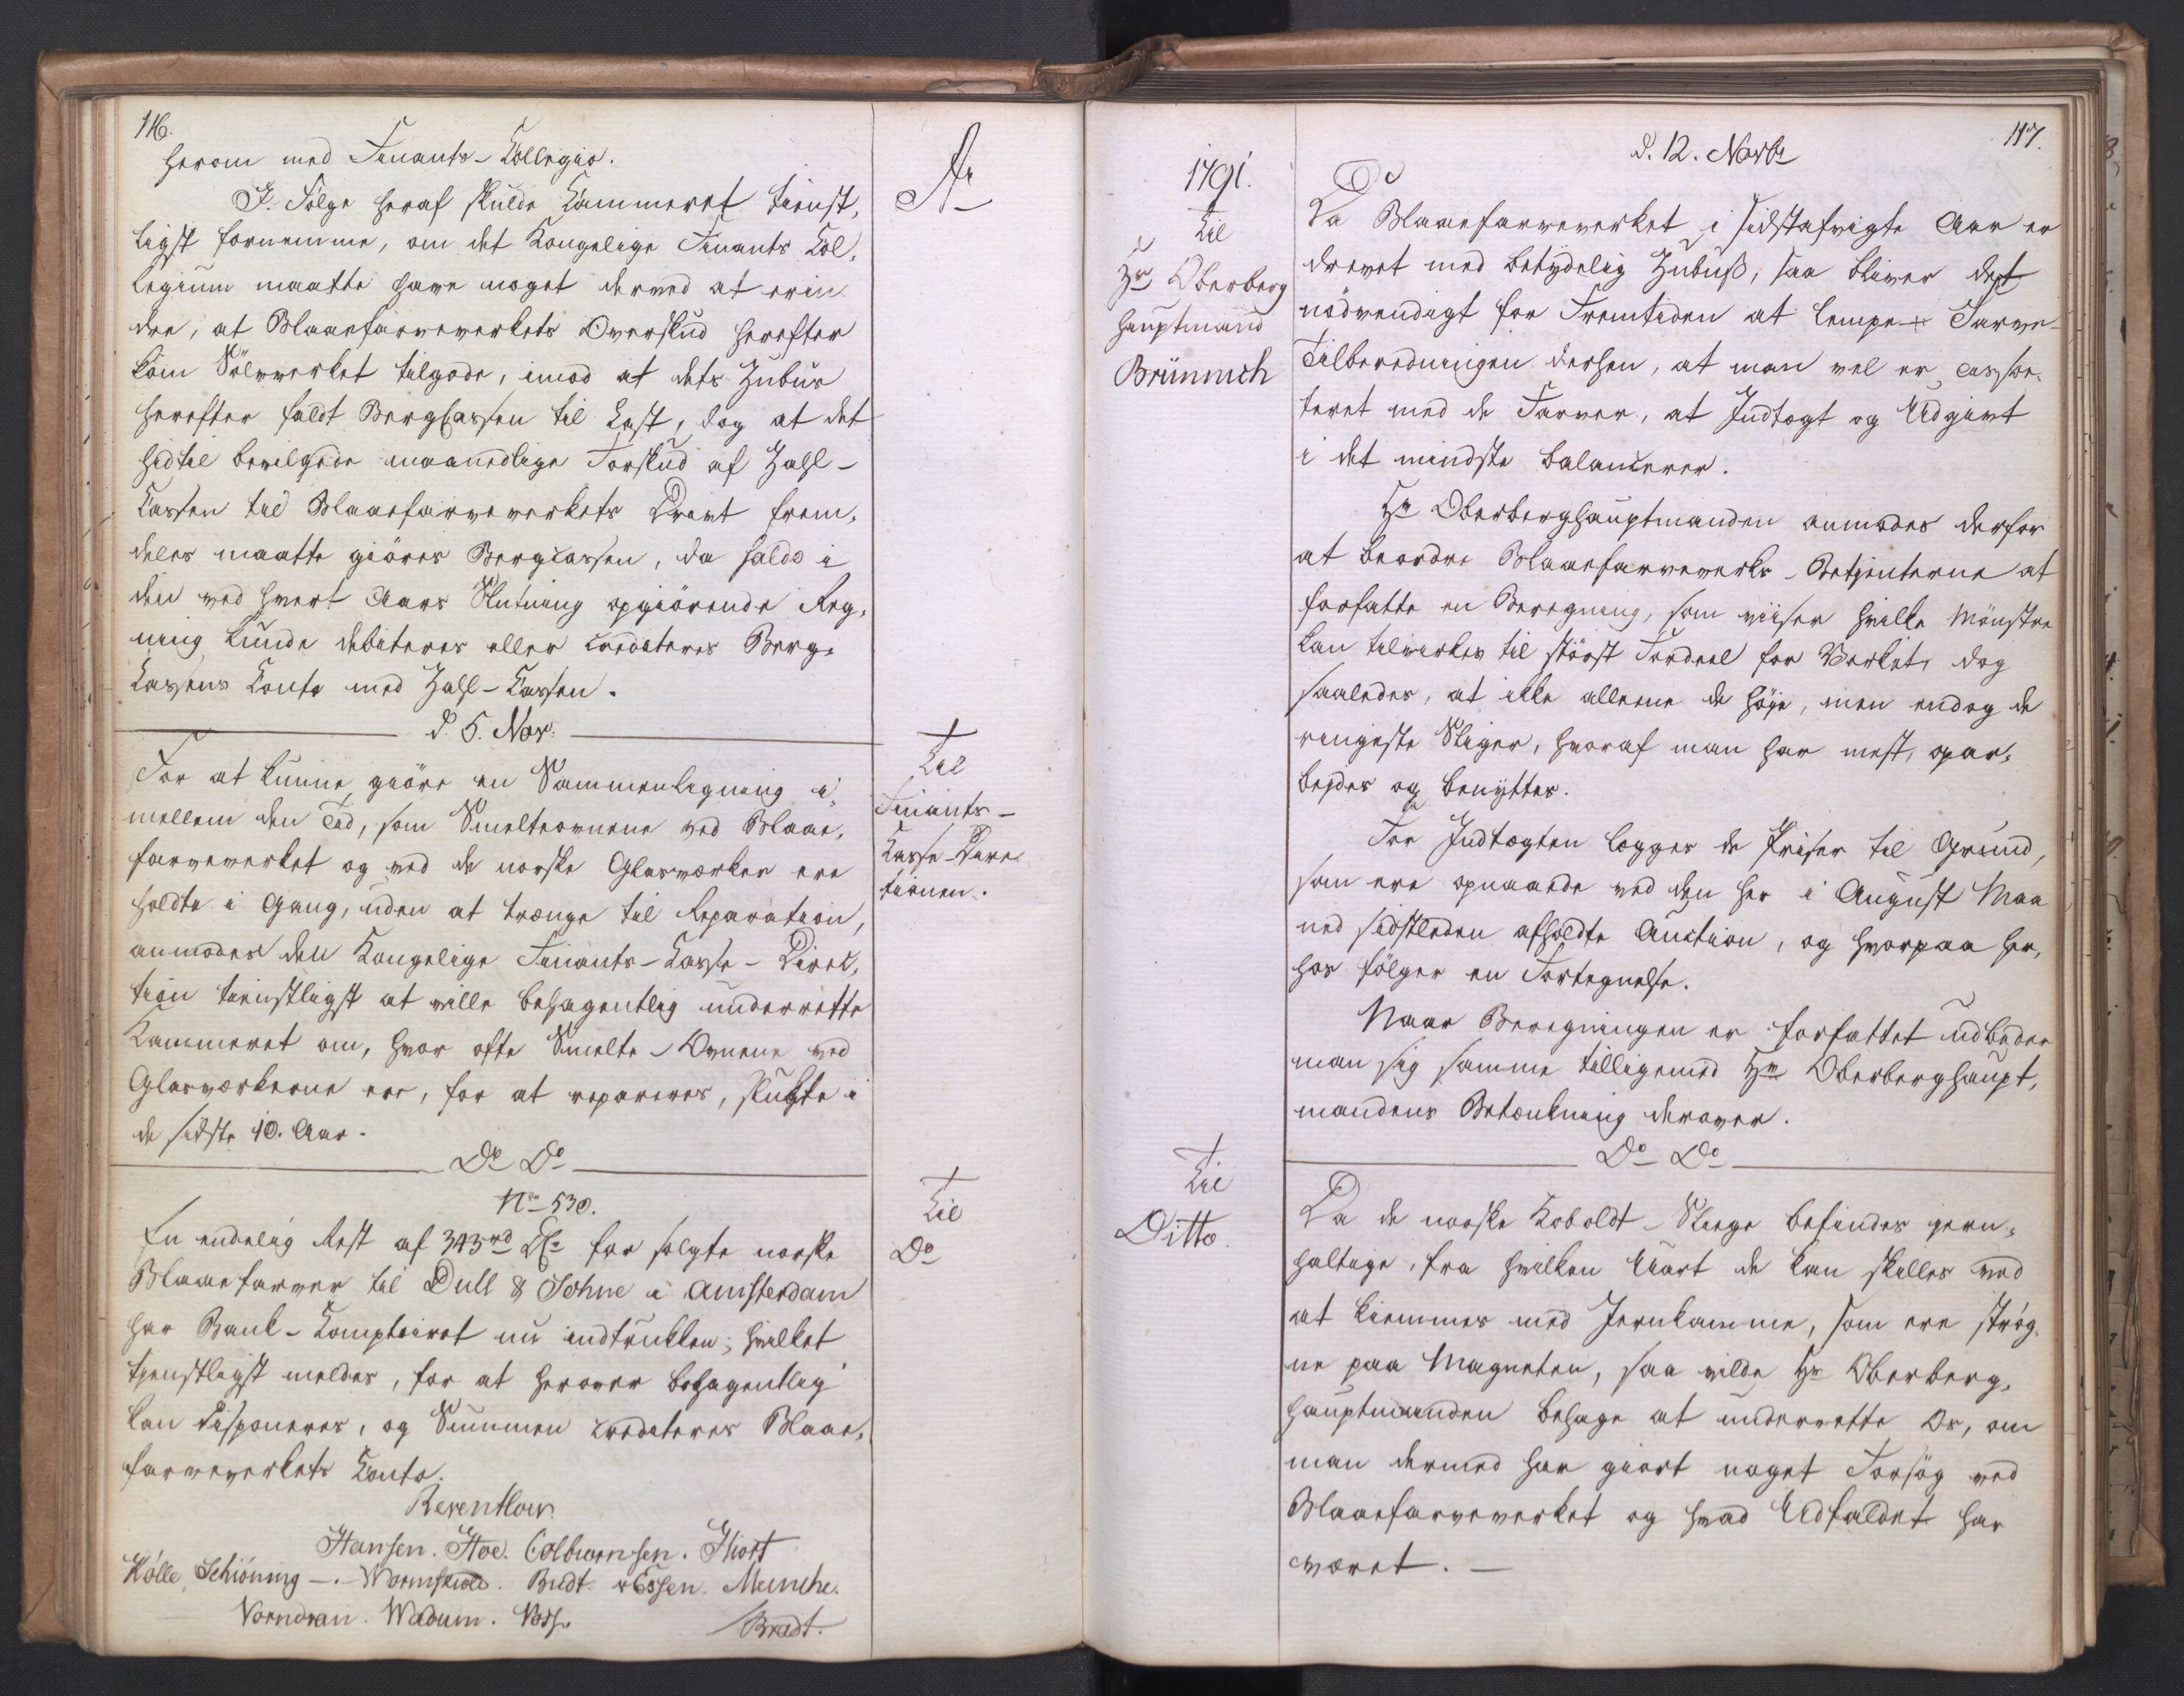 116.
herom med Finants-Collegio.
I Følge heraf skulde Kammeret tienst,
ligst fornemme, om det Kongelige Finants Col,
legium maatte have noget derved at erin
dre, at Blaaefarveverkets Overskud herefter
kom Sølvverket tilgode, imod at dets Zubus
herefter faldt BergCassen til Last, dog at det
hidtil bevilgede maanedlige Forskud af Zahl-
Cassen til Blaaefarveverkets Drivt frem,
deles maatte giøres Bergcassen, da Saldo i
den ved hvert Aars Slutning opgiørende Reg,
ning kunde debiteres eller crediteres Berg,
Cassens Conto med Zahl-Cassen.
d. 5. Nov:
For at kunne giøre en Sammenligning i,
mellem den Tid, som Smelteovnene ved Blaae,
farveverket og ved de norske Glasværker ere
holdte i Gang, uden at trænge til Reparation,
anmodes den Kongelige Finants-Casse-Direc,
tion tienstligst at ville behagentlig underrette
Kammeret om, hvor ofte Smelte-Ovnene ved
Glasværkerne ere, for at repareres, slukte i
de sidste 10. Aar.
Do Do
No 530.
En endelig Rest af 343 rd for solgte norske
Blaaefarver til Dull & Sohne i Amsterdam
har Bank-Comptoiret nu indtrukken; hvilket
tienstligst meldes, for at herover behagentlig
kan disponeres, og Summen crediteres Blaae,
farveverkets Conto.
Reventlow.
Hansen. Hoe. Colbiørnsen. Hiort
Kølle Schiønning -. Wormskiold. Budt. v Essen. Munche.
Vorndran. Wadum. Voss.
Bradt.
Til
Finants-
Casse-Direc
tionen.
Til
Do
117.
1791.
d. 12. Novbr
Til
Hr Oberberg
hauptmand
Brünnich
Da Blaaefarveverket i sidstafvigte Aar er
drevet med betydelig Zubuß, saa bliver det
nødvendigt for Fremtiden at lempe Farve-
Tilberedningen derhen, at man vel er assor,
teret med de Farver, at Indtægt og Udgivt
i det mindste balancerer.
Hr Oberberghauptmanden anmodes derfor
at beordre Blaaefarveverks-Betjenterne at
forfatte en Beregning, som viiser hvilke Mønstre
kan tilvirkes til størst Fordeel for Verket, dog
saaledes, at ikke alleene de høje, men endog de
ringeste Sliger, hvoraf man har mest, opar,
bejdes og benyttes.
For Indtægten lægges de Priser til Grund,
som ere opnaaede ved den her i August Maa
ned sidstleden afholdte Auction, og hvorpaa her,
hos følger en Fortegnelse.
Naar Beregningen er forfattet udbeder
man sig samme tilligemed Hr Oberberghaupt,
mandens Betænkning derover.
Do Do
Til
Ditto.
Da de norske Koboldt-Sliege befindes jern,
haltige, fra hvilken Uart de kan skilles ved
at kiemmes med Jernkamme, som ere strøg,
ne paa Magneten, saa vilde Hr Oberberg,
hauptmanden behage at underrette Os, om
man dermed har giort noget Forsøg ved
Blaaefarveverket og hvad Udfaldet har
været. -